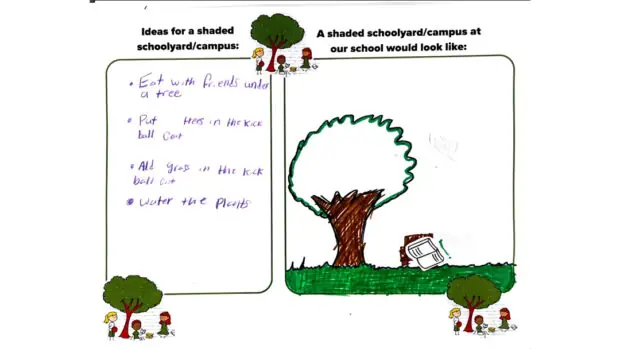 Ideas for a shaded
schoolyard/campus:
A shaded schoolyard/campus at
our school would look like:
• Eat with friends under
a tree
• Put trees in the kick
ball Cort
• Add grass in the kick
ball Cort
• Water the Plants